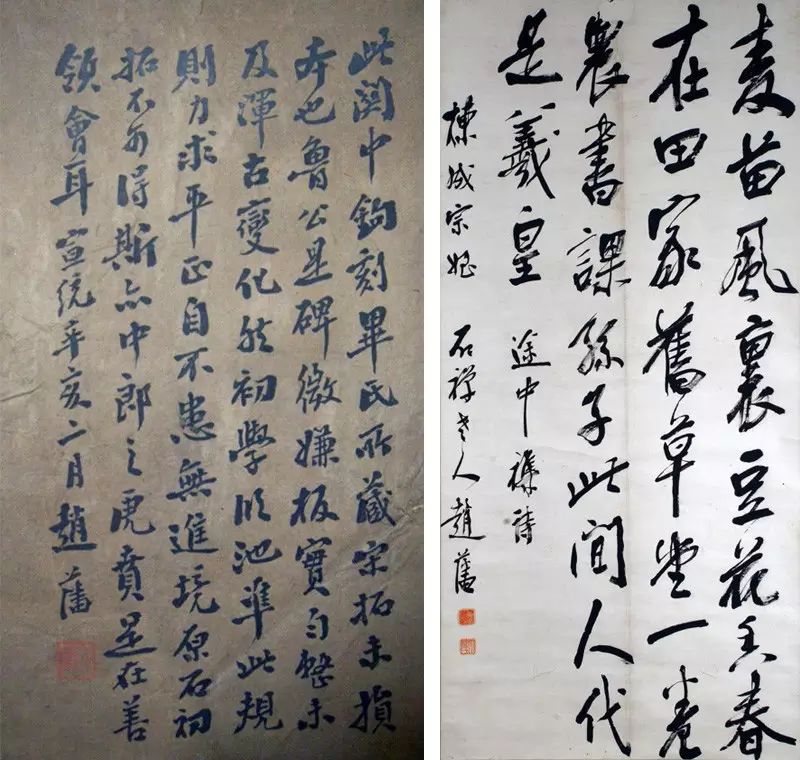 此關中鉤刻畢氏所藏宋拓未損
本也魯公是碑微嫌板實勻整未
及渾古變化然初學臨池準此規
則力求平正自不患無進境原石初
拓不可得斯亦中郎之虎賁是在善
領會耳宣統辛亥二月趙藩
麥苗風裏豆花香春
在田家舊草堂一卷
農書課孫子此間人代
是羲皇 途中襍詩
棟成宗 石禪老人趙藩